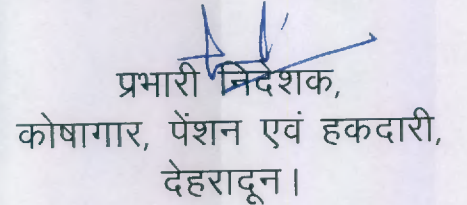 प्रभारी निदेशक,
कोषागार, पेंशन एवं हकदारी,
देहरादून।